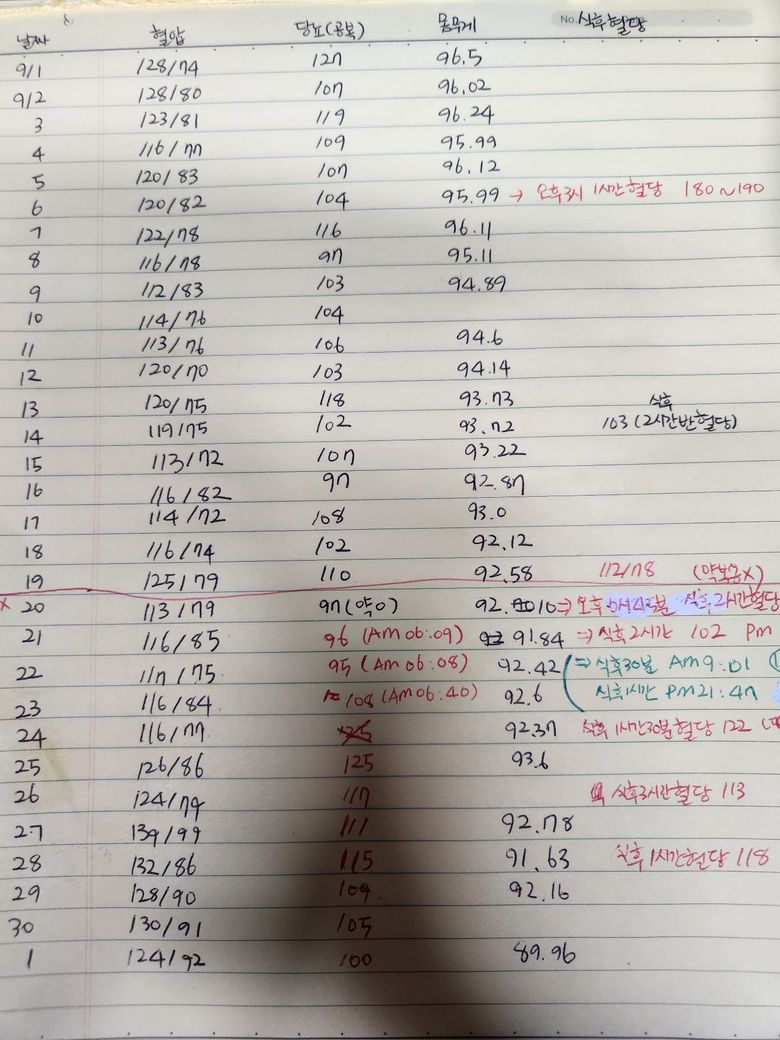 날짜 혈압 당뇨(공복) 몸무게 No. 식후혈당
9/1 128/74 127 96.5
9/2 128/80 107 96.02
3 123/81 119 96.24
4 116/77 109 95.99
5 120/83 107 96.12
6 120/82 104 95.99 → 오후3시 1시간혈당 180~190
7 122/78 116 96.11
8 116/78 97 95.11
9 112/83 103 94.89
10 114/76 104
11 113/76 106 94.6
12 120/70 103 94.14
13 120/75 118 93.73 식후
14 119/75 102 93.72 103 (2시간반혈당)
15 113/72 107 93.22
16 116/82 97 92.87
17 114/72 108 93.0
18 116/74 102 92.12
19 125/79 110 92.58 112/78 (약복용x)
x 20 113/79 97(약o) 92.10 ⇒ 오후 식후 2시간혈당
21 116/85 96 (Am 06:09) 91.84 ⇒ 식후 2시간 102 pm
22 117/75 95 (Am 06:08) 92.42 ⇒ 식후30분 Am 9:01
23 116/84 108 (Am 06:40) 92.6 식후1시간 PM 21:47
24 116/77 92.37 식후 1시간30분혈당 122
25 126/86 125 93.6
26 124/79 117 식후3시간혈당 113
27 139/99 111 92.78
28 132/86 115 91.63 식후 1시간혈당 118
29 128/90 109 92.16
30 130/91 105
1 124/92 100 89.96